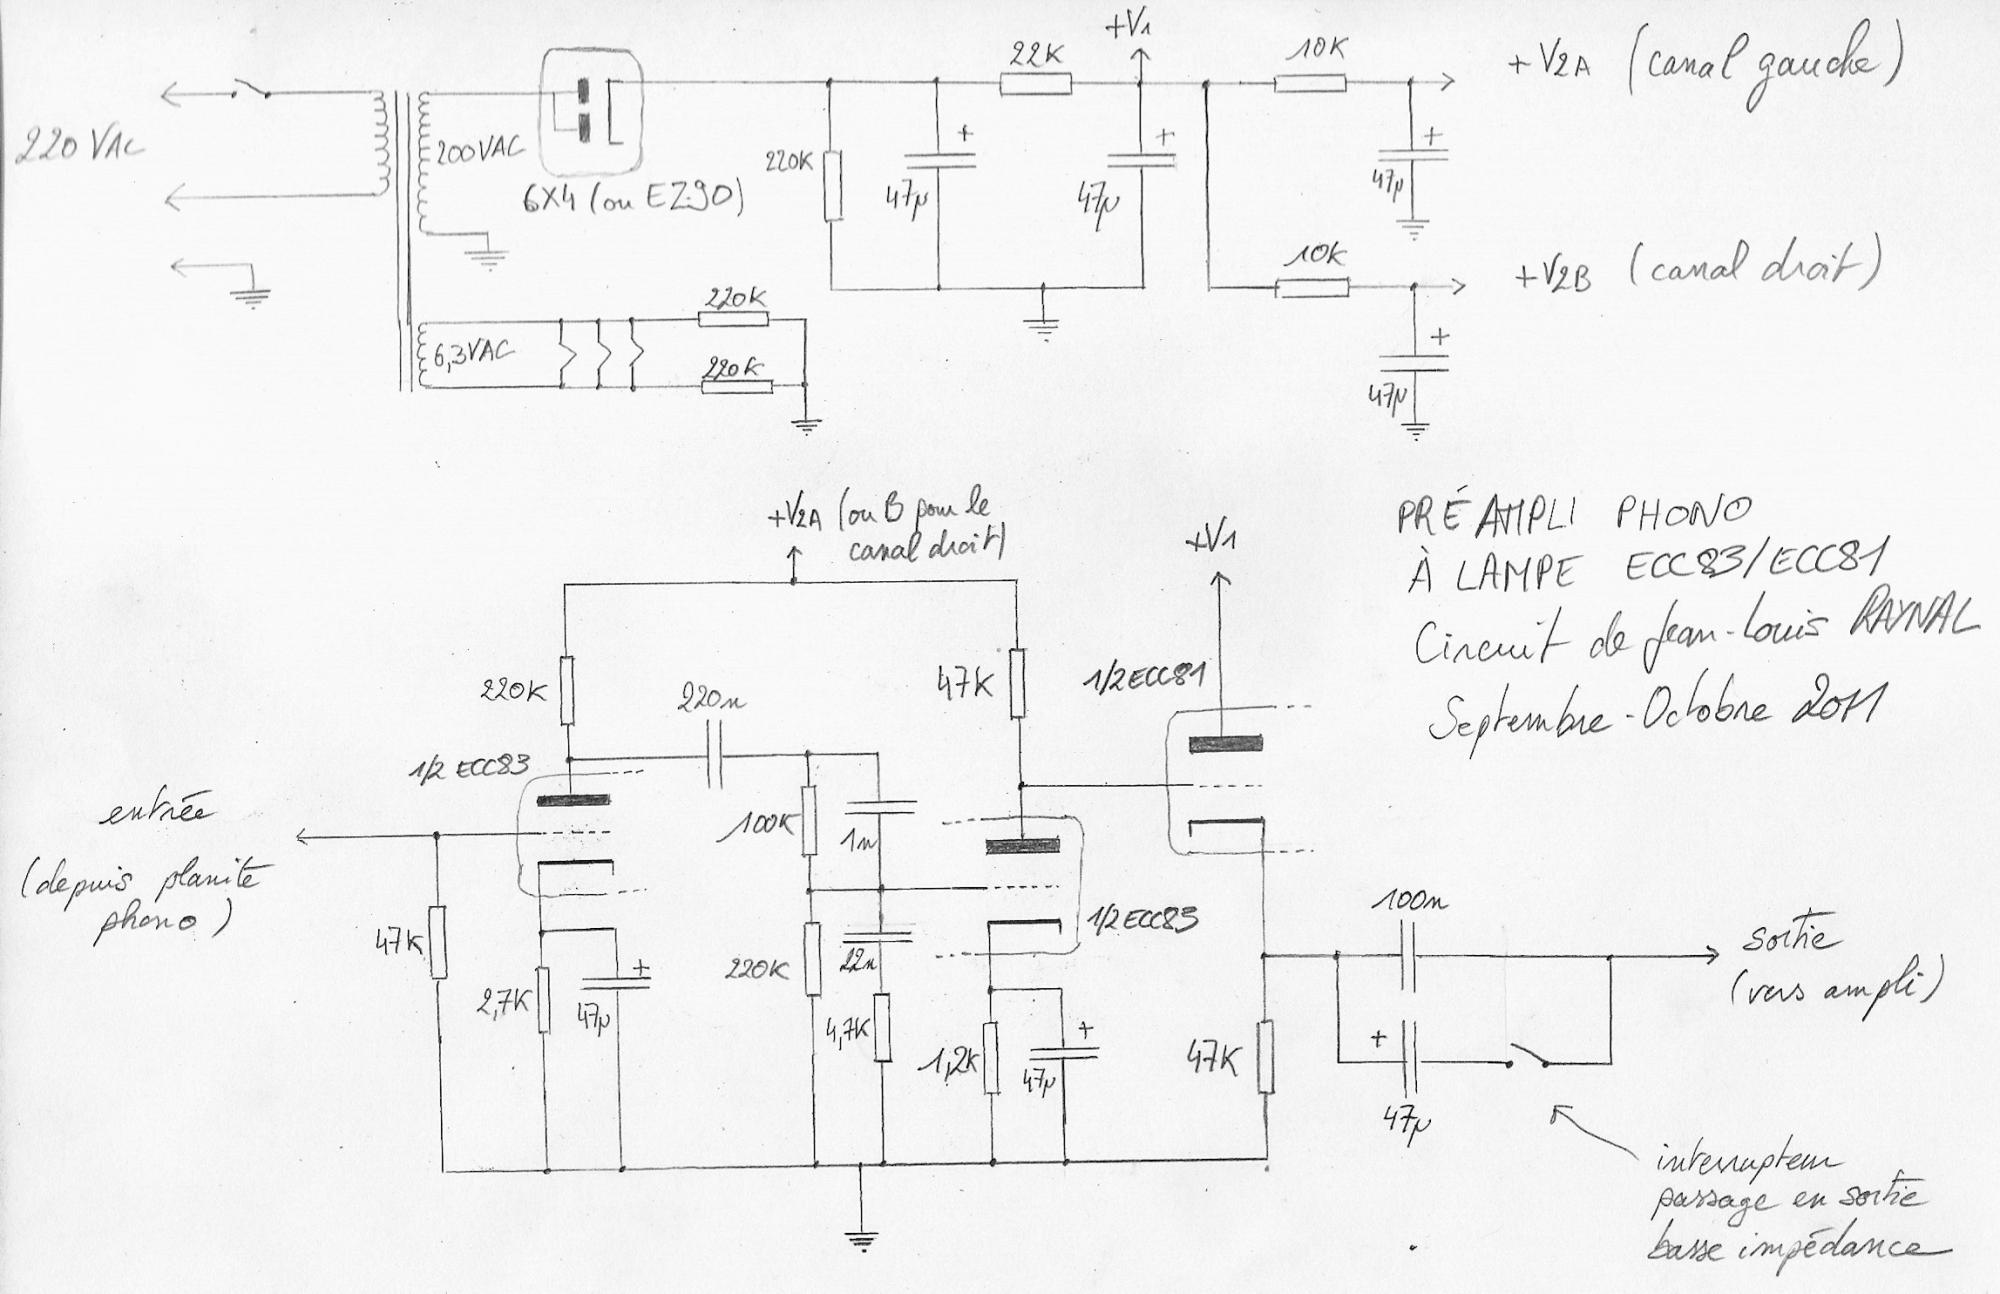 220 VAC
200VAC
6X4 (ou EZ90)
220K
47µ
22K
+V1
47µ
10K
+V2A (canal gauche)
47µ
10K
+V2B (canal droit)
47µ
6,3VAC
220K
220K
+V2A (ou B pour le
canal droit)
+V1
PRÉAMPLI PHONO
À LAMPE ECC83/ECC81
Circuit de Jean-Louis RAYNAL
Septembre-Octobre 2011
220K
220n
47K
1/2 ECC81
1/2 ECC83
entrée
(depuis planite
phono)
47K
2,7K
47µ
100K
1n
220K
22n
4,7K
1/2 ECC83
1,2K
47µ
47K
100n
47µ
sortie
(vers ampli)
interrupteur
passage en sortie
basse impédance